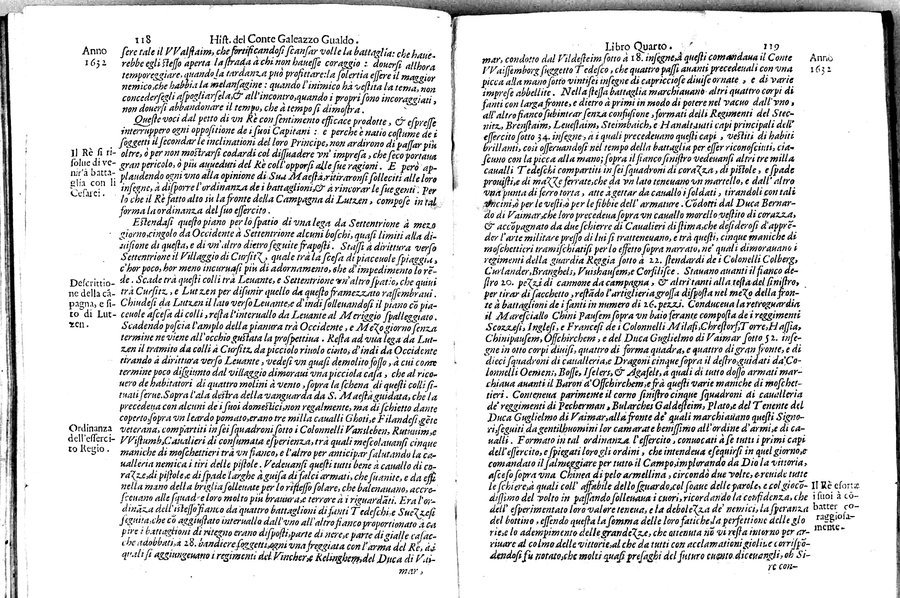 118 Hist. del Conte Galeazzo Gualdo.
Anno
1632
sere tale il VValstaim, che fortificandosi scansar volle la battaglia: che haue-
rebbe egli stesso aperta la strada à chi non hauesse coraggio: douersi allhora
temporeggiare, quando la tardanza può profittare: la solertia essere il maggior
nemico, che habbi la melensagine: quando l'inimico hà vestita la tema, non
concedersegli aspogliarsela, & all'incontro, quando i propri sono incoraggiati,
non douersi abbandonare il tempo, che à tempo si dimostra.
Queste voci dal petto di vn Rè con sentimento efficace prodotte, & espresse
interruppero ogni oppositione de i suoi Capitani: e perche è natio costume de i
soggetti il secondar le inclinationi del loro Principe, non ardirono di passar più
oltre, ò per non mostrarsi codardi col dissuader vn'impresa, che seco portaua
gran pericolo, ò più aueduti del Rè coll'opporsi alle sue ragioni. E però ap-
plaudendo ogni vno alla opinione di Sua Maestà, ritiraronsi solleciti alle loro
insegne, à disporre l'ordinanza de i battaglioni, & à rincorar le sue genti. Per
lo che il Rè fatto alto sù la fronte della Campagna di Lutzen, compose in tal
forma la ordinanza del suo essercito.
Il Rè si ri-
solue di ve-
nir'à batta-
glia con li
Cesarei.
Estendasi questo piano per lo spatio di vna lega da Settentrione à mezo
giorno, cingolo da Occidente à Settentrione alcuni boschi, quasi limiti alla di-
uisione di questa, e di vn'altro dietro seguite fraposti. Stassi à dirittura verso
Settentrione il Villaggio di Cursitz, quale trà la scesa di piaceuole spiaggia,
c'hor poco, hor meno incuruasi più di adornamento, che d'impedimento lo rē-
de. Scade trà questi colli trà Leuante, e Settentrione vn'altro spatio, che quiui
trà Cursitz, e Lutzen per disuello da questo framezzato rassembraui.
Chiudesi da Lutzen il lato verso Leuante, e d'indi solleuandosi il piano cō pia-
ceuole ascesa di colli, resta l'interuallo da Leuante al Meriggio spalleggiato.
Scadendo poscia l'amplo della pianura trà Occidente, e Mezo giorno senza
termine ne viene all'occhio gustata la prospettiua. Resta ad vna lega da Lut-
zen il tramito da colli à Cursitz da picciolo riuolo cinto, d'indi da Occidente
tirando à dirittura verso Leuante, vedesi vn quasi demolito fosso, à cui come
termine poco disgiunto dal villaggio dimoraui vna picciola casa, che al rico-
uero de habitatori di quattro molini à vento, sopra la schena di questi colli si-
tuati serue.
Descrittio-
ne della cā-
pagna, e si-
to di Lut-
zen.
Sopra l'ala destra della vanguarda da S. Maestà guidata, che la
precedeua con alcuni de i suoi domestici, non regalmente, ma di schietto dante
coperto, sopra vn leardo pomato, erano tre milla caualli Ghoti, e Filandesi gēte
veterana, compartiti in sei squadroni sotto i Colonnelli Vansleben, Rutuuim, e
VVistumb, Caualieri di consumata esperienza, trà quali mescolauansi cinque
maniche di moschettieri trà vn fianco, e l'altro per anticipar salutando la ca-
ualleria nemica i tiri delle pistole. Vedeuansi questi tutti bene à cauallo di co-
razze, di pistole, e di spade larghe à guisa di falci armati, che suanite, e da essi
nella mano della briglia solleuate per lo riflesso solare, che balenauano, accre-
sceuano alle squadre loro molto più brauura, e terrore à i riguardāti. Era l'or-
dinanza dell'istesso fianco da quattro battaglioni di fanti Tedeschi, e Suezzesi
seguita, che cō aggiustato interuallo dall'vno all'altro fianco proportionato à ca-
pire i battaglioni di ritegno erano disposti, parte di nere, e parte di gialle casac-
che addobbati, à 28. bandiere soggetti, ogni vna freggiata con l'arma del Rè, à i
quali si aggiungeuano i regimenti del Vincher, e Relingher, del Duca di Vai-
mar,
Ordinanza
dell'esserci-
to Regio.
Libro Quarto. 119
Anno
1632
mar, condotto dal Vildesteim sotto à 18. insegne, à questi comandaua il Conte
VVaissemborg soggetto Tedesco, che quattro passi auanti precedeuali con vna
picca alla mano sotto vintisei insegne di capricciose diuise ornate, e di varie
imprese abbellite. Nella stessa battaglia marchiauano altri quattro corpi di
fanti con larga fronte, e dietro à primi in modo di potere nel vacuo dall'vno,
all'altro fianco subintrar senza confusione, formati delle Regimenti del Stec-
nitz, Brenstaim, Leuestaim, Steimbaich, e Hamaltutti capi principali dell'
essercito sotto 34. insegne, à i quali precedeuano questi capi, vestiti di habiti
brillanti, così osseruandosi nel tempo della battaglia per esser riconosciuti, cia-
scuno con la picca alla mano; sopra il fianco sinistro vedeuansi altri tre milla
caualli Tedeschi compartiti in sei squadroni di corazza, di pistole, e spade
prouisti, e di mazze ferrate, che da vn lato teneuano vn martello, e dall'altro
vna punta di ferro torta, atte à gettar da cauallo i soldati, tirandoli con tali
vncini à per le vesti, à per le fibbie dell'armature. Condotti dal Duca Bernar-
do di Vaimar, che loro precedeua sopra vn cauallo morello vestito di corazza,
& accompagnato da due schiere di Caualieri di stima, che desiderosi d'appré-
der l'arte militare presso di lui si tratteneuano, e trà questi, cinque maniche di
moschettieri tramischiatisi per lo effetto sopra narrato, ne' quali dimorauano i
regimenti della guardia Reggia sotto à 22. stendardi de i Colonelli Colberg,
Curlander, Branghels, Vuishausem, e Corsilisce. Stauano auanti il fianco de-
stro 20. pezzi di cannone da campagna, & altri tanti alla testa del sinistro,
per tirar di sacchetto, restādo l'artigleria grossa disposta nel mezo della fron-
te à battaglioni de i fanti in numero di 26. pezzi. Conduceua la retroguardia
il Maresciallo Chini Pausem sopra vn baio ferante composta de i regimenti
Scozzesi, Inglesi, e Francesi de i Colonnelli Milasi, Christorf, Torre, Hassia,
Chinipausem, Offchirchem, e del Duca Guglielmo di Vaimar sotto 52. inse-
gne in otto corpi diuisi, quattro di forma quadra, e quattro di gran fronte, e di
dieci squadroni di caualleria, e Dragoni cinque sopra il destro, guidati da Co-
lonnelli Oemeni, Bosse, Iselers, & Agasselt, à quali di tutto dosso armati mar-
chiaua auanti il Baron d'Offchirchem, e frà questi varie maniche di moschet-
tieri. Conteneua parimente il corno sinistro cinque squadroni di caualleria
de' reggimenti di Pecherman, Bularches, Galdesteim, Plato, e del Tenente del
Duca Guglielmo di Vaimar, alla fronte de' quali marchiauano questi Signo-
ri, seguiti da gentilhuomini lor camarate benissimo all'ordine d'armi, e di ca-
ualli. Formato in tal ordinanza l'essercito, conuocati à se tutti i primi capi
dell'essercito, e spiegati loro gli ordini, che intendeua esequirsi in quel giorno, e
comandato il salmeggiar per tutto il Campo, implorando da Dio la vittoria,
asceso sopra vna Chinea di pelo armellina, circondò due volte, e reuide tutte
le schiere, à quali coll' affabile dello sguardo, col soaue delle parole, e col giocō-
dissimo del volto in passando solleuaua i cuori, ricordando la confidenza, che
dell'esperimentato loro valore teneua, e la debolezza de' nemici, la speranza
del bottino, essendo questa la somma delle loro fatiche, la perfettione delle glo
rie, e lo adempimento delle grandezze, che ottenuta nō vi resta intorno per ar-
riuare al colmo delle vittorie, al che da tutti con acclamationi gioliue corrispō-
dendosi fu notato, che molti quasi presaghi del futuro euento dicetangli, oh Si-
re con-
Il Rè esorta
i suoi à cō-
batter co-
raggiosa-
mente.